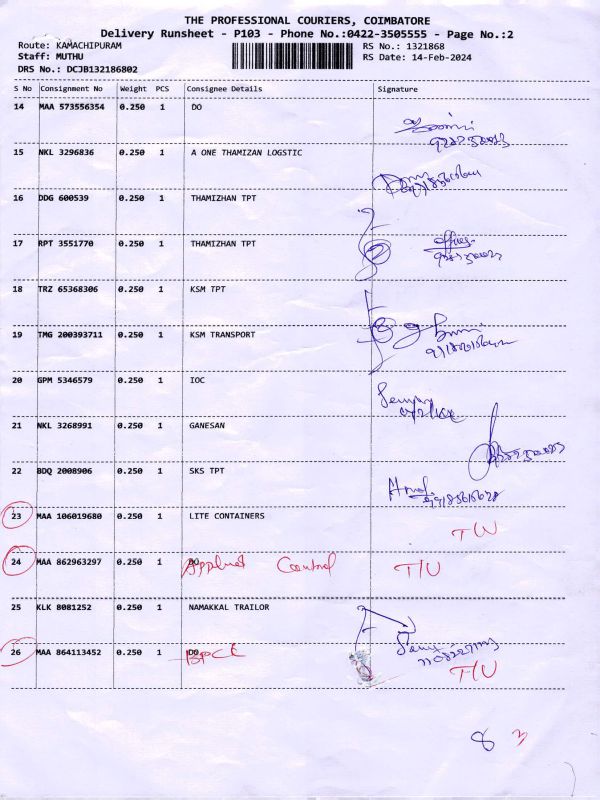 THE PROFESSIONAL COURIERS, COIMBATORE
Delivery Runsheet - P103 - Phone No.:0422-3505555 - Page No.:2
Route: KAMACHIPURAM RS No.: 1321868
Staff: MUTHU RS Date: 14-Feb-2024
DRS No.: DCJB132186802
S No Consignment No Weight PCS Consignee Details Signature
14 MAA 573556354 0.250 1 DO
15 NKL 3296836 0.250 1 A ONE THAMIZAN LOGSTIC
16 DDG 600539 0.250 1 THAMIZHAN TPT
17 RPT 3551770 0.250 1 THAMIZHAN TPT
18 TRZ 65368306 0.250 1 KSM TPT
19 TMG 200393711 0.250 1 KSM TRANSPORT
20 GPM 5346579 0.250 1 IOC
21 NKL 3268991 0.250 1 GANESAN
22 BDQ 2008906 0.250 1 SKS TPT
23 MAA 106019680 0.250 1 LITE CONTAINERS T/U
24 MAA 862963297 0.250 1 DO Control T/U
25 KLK 8081252 0.250 1 NAMAKKAL TRAILOR
26 MAA 864113452 0.250 1 DO T/U
8 3